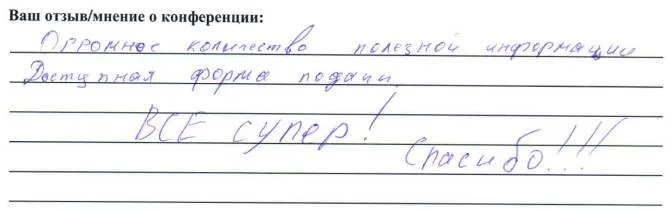 Ваш отзыв/мнение о конференции:
Огромное количество полезной информации
Доступная форма подачи.
ВСЕ супер!
Спасибо!!!